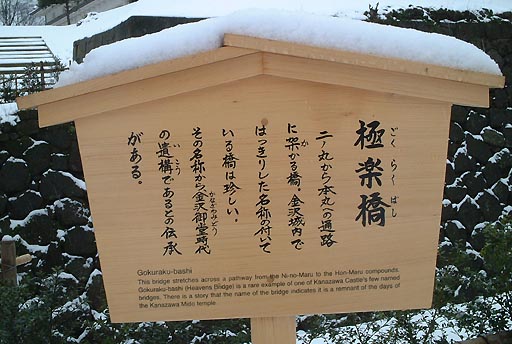 極楽橋
ごくらくばし
二ノ丸から本丸への通路
に架かる橋。金沢城内で
か
はっきりした名称の付いて
いる橋は珍しい。
その名称から金沢御堂時代
かなざわみどう
の遺構であるとの伝承
いこう
がある。
Gokuraku-bashi
This bridge stretches across a pathway from the Ni-no-Maru to the Hon-Maru compounds.
Gokuraku-bashi (Heavens Bridge) is a rare example of one of Kanazawa Castle's few named
bridges. There is a story that the name of the bridge indicates it is a remnant of the days of
the Kanazawa Mido temple.